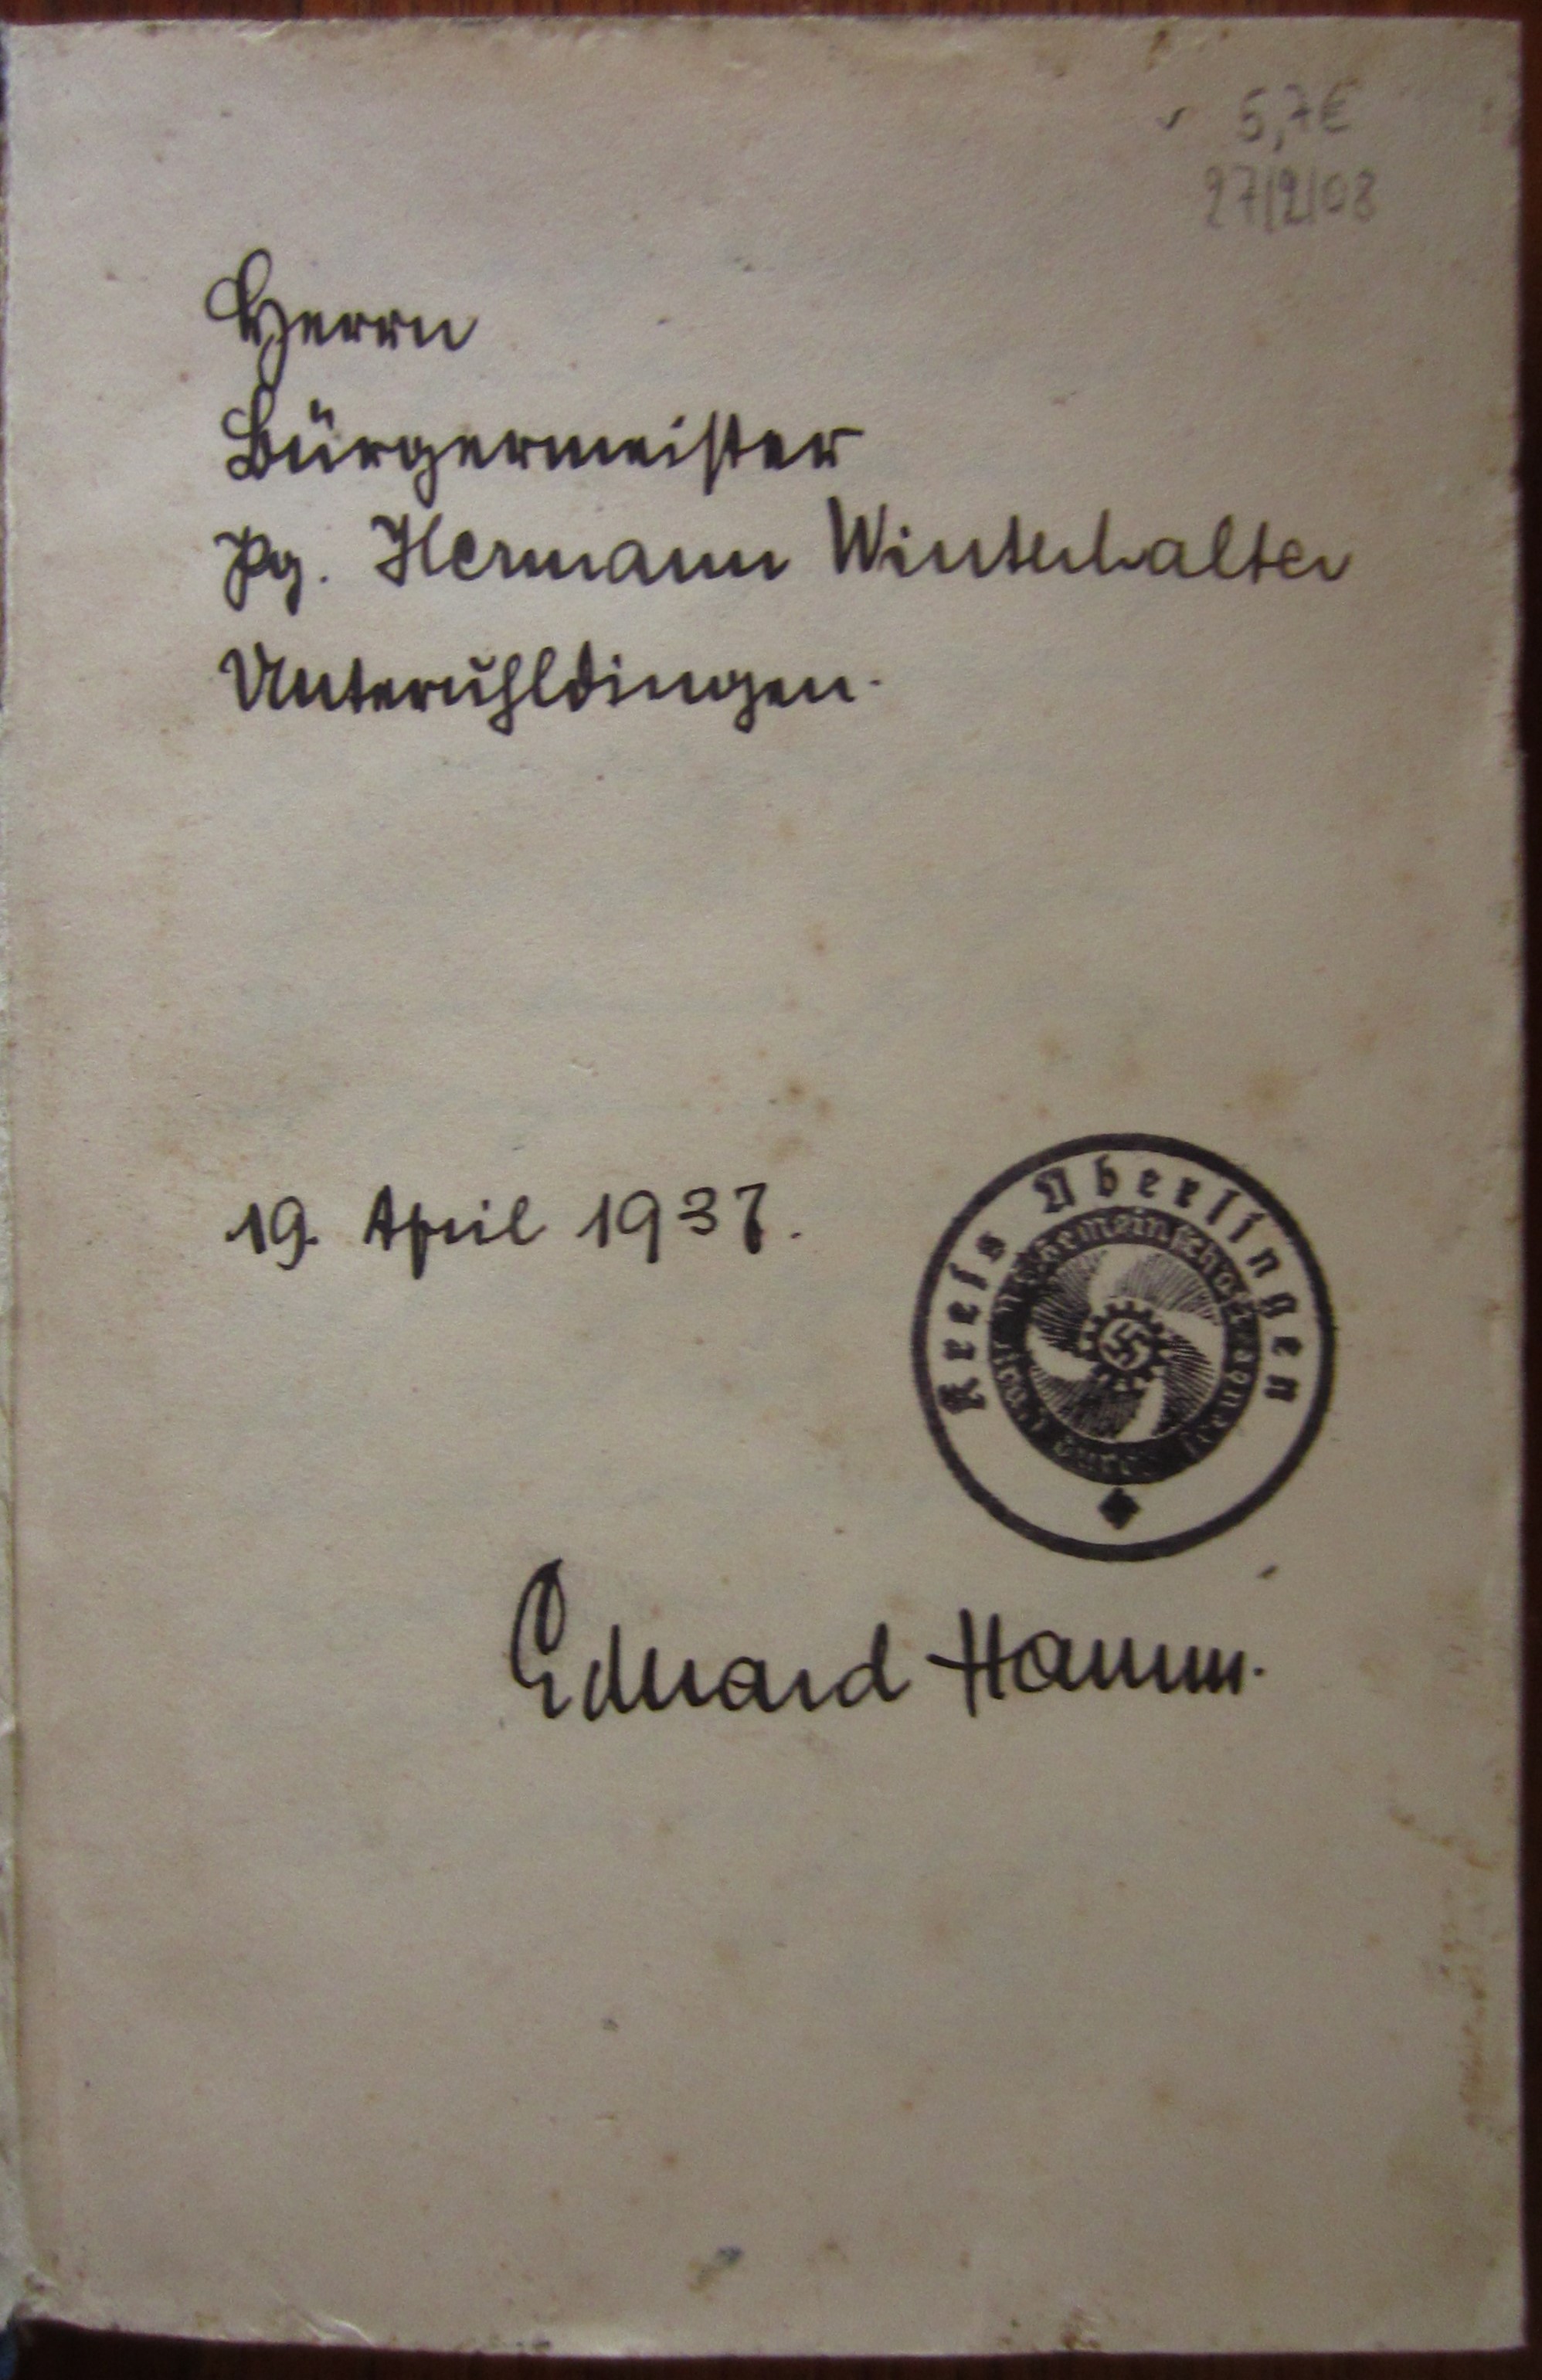 5,7€
27/2/08
Herrn
Bürgermeister
Pg. Hermann Winterhalter
Unteruhldingen.
19. April 1937.
Kreis Überlingen
Eduard Hamm.